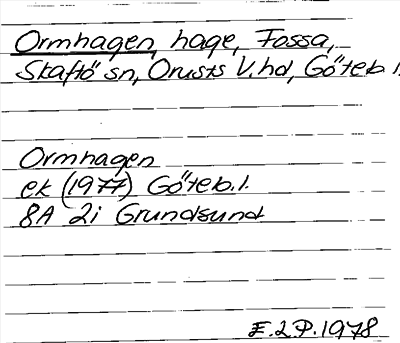 Ormhagen, hage, Fossa,
Skaftö sn, Orusts V. hd, Göteb. l.
Ormhagen
ek (1977) Göteb. l.
8A 2i Grundsund
E.L.P. 1978